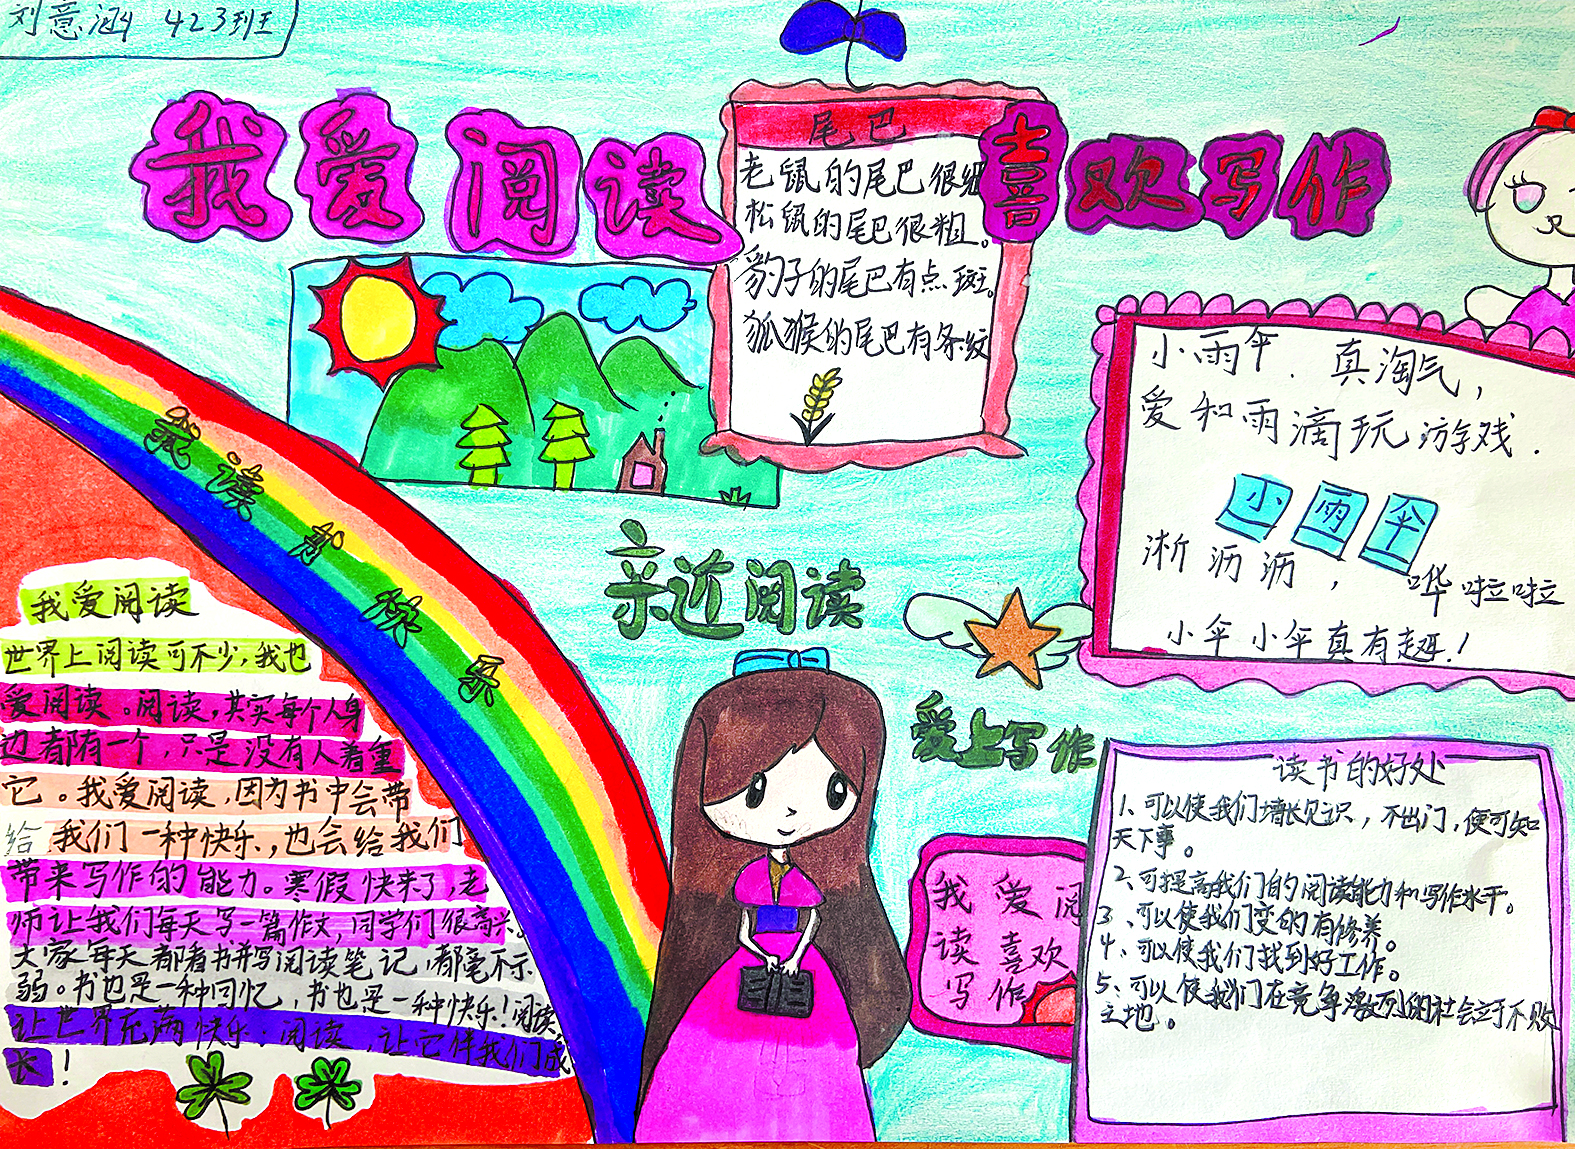 刘意涵 423班
我爱阅读
喜欢写作
尾巴
老鼠的尾巴很细
松鼠的尾巴很粗。
豹子的尾巴有点斑。
狐猴的尾巴有条纹
小雨伞.真淘气,
爱和雨滴玩游戏.
小雨伞
淅沥沥,哗啦啦
小伞小伞真有趣!
我读书快乐
亲近阅读
爱上写作
我爱阅读
世界上阅读可不少,我也
爱阅读。阅读,其实每个人身
边都有一个,只是没有人着重
它。我爱阅读,因为书中会带
给我们一种快乐,也会给我们
带来写作的能力。寒假快来了,老
师让我们每天写一篇作文,同学们很高兴。
大家每天都看书并写阅读笔记,都毫不示
弱。书也是一种回忆,书也是一种快乐!阅读,
让世界充满快乐;阅读,让它伴我们成
长!
我爱阅
读喜欢
写作
读书的好处
1、可以使我们增长见识,不出门,便可知
天下事。
2、可提高我们的阅读能力和写作水平。
3、可以使我们变的有修养。
4、可以使我们找到好工作。
5、可以使我们在竞争激烈的社会立于不败
之地。